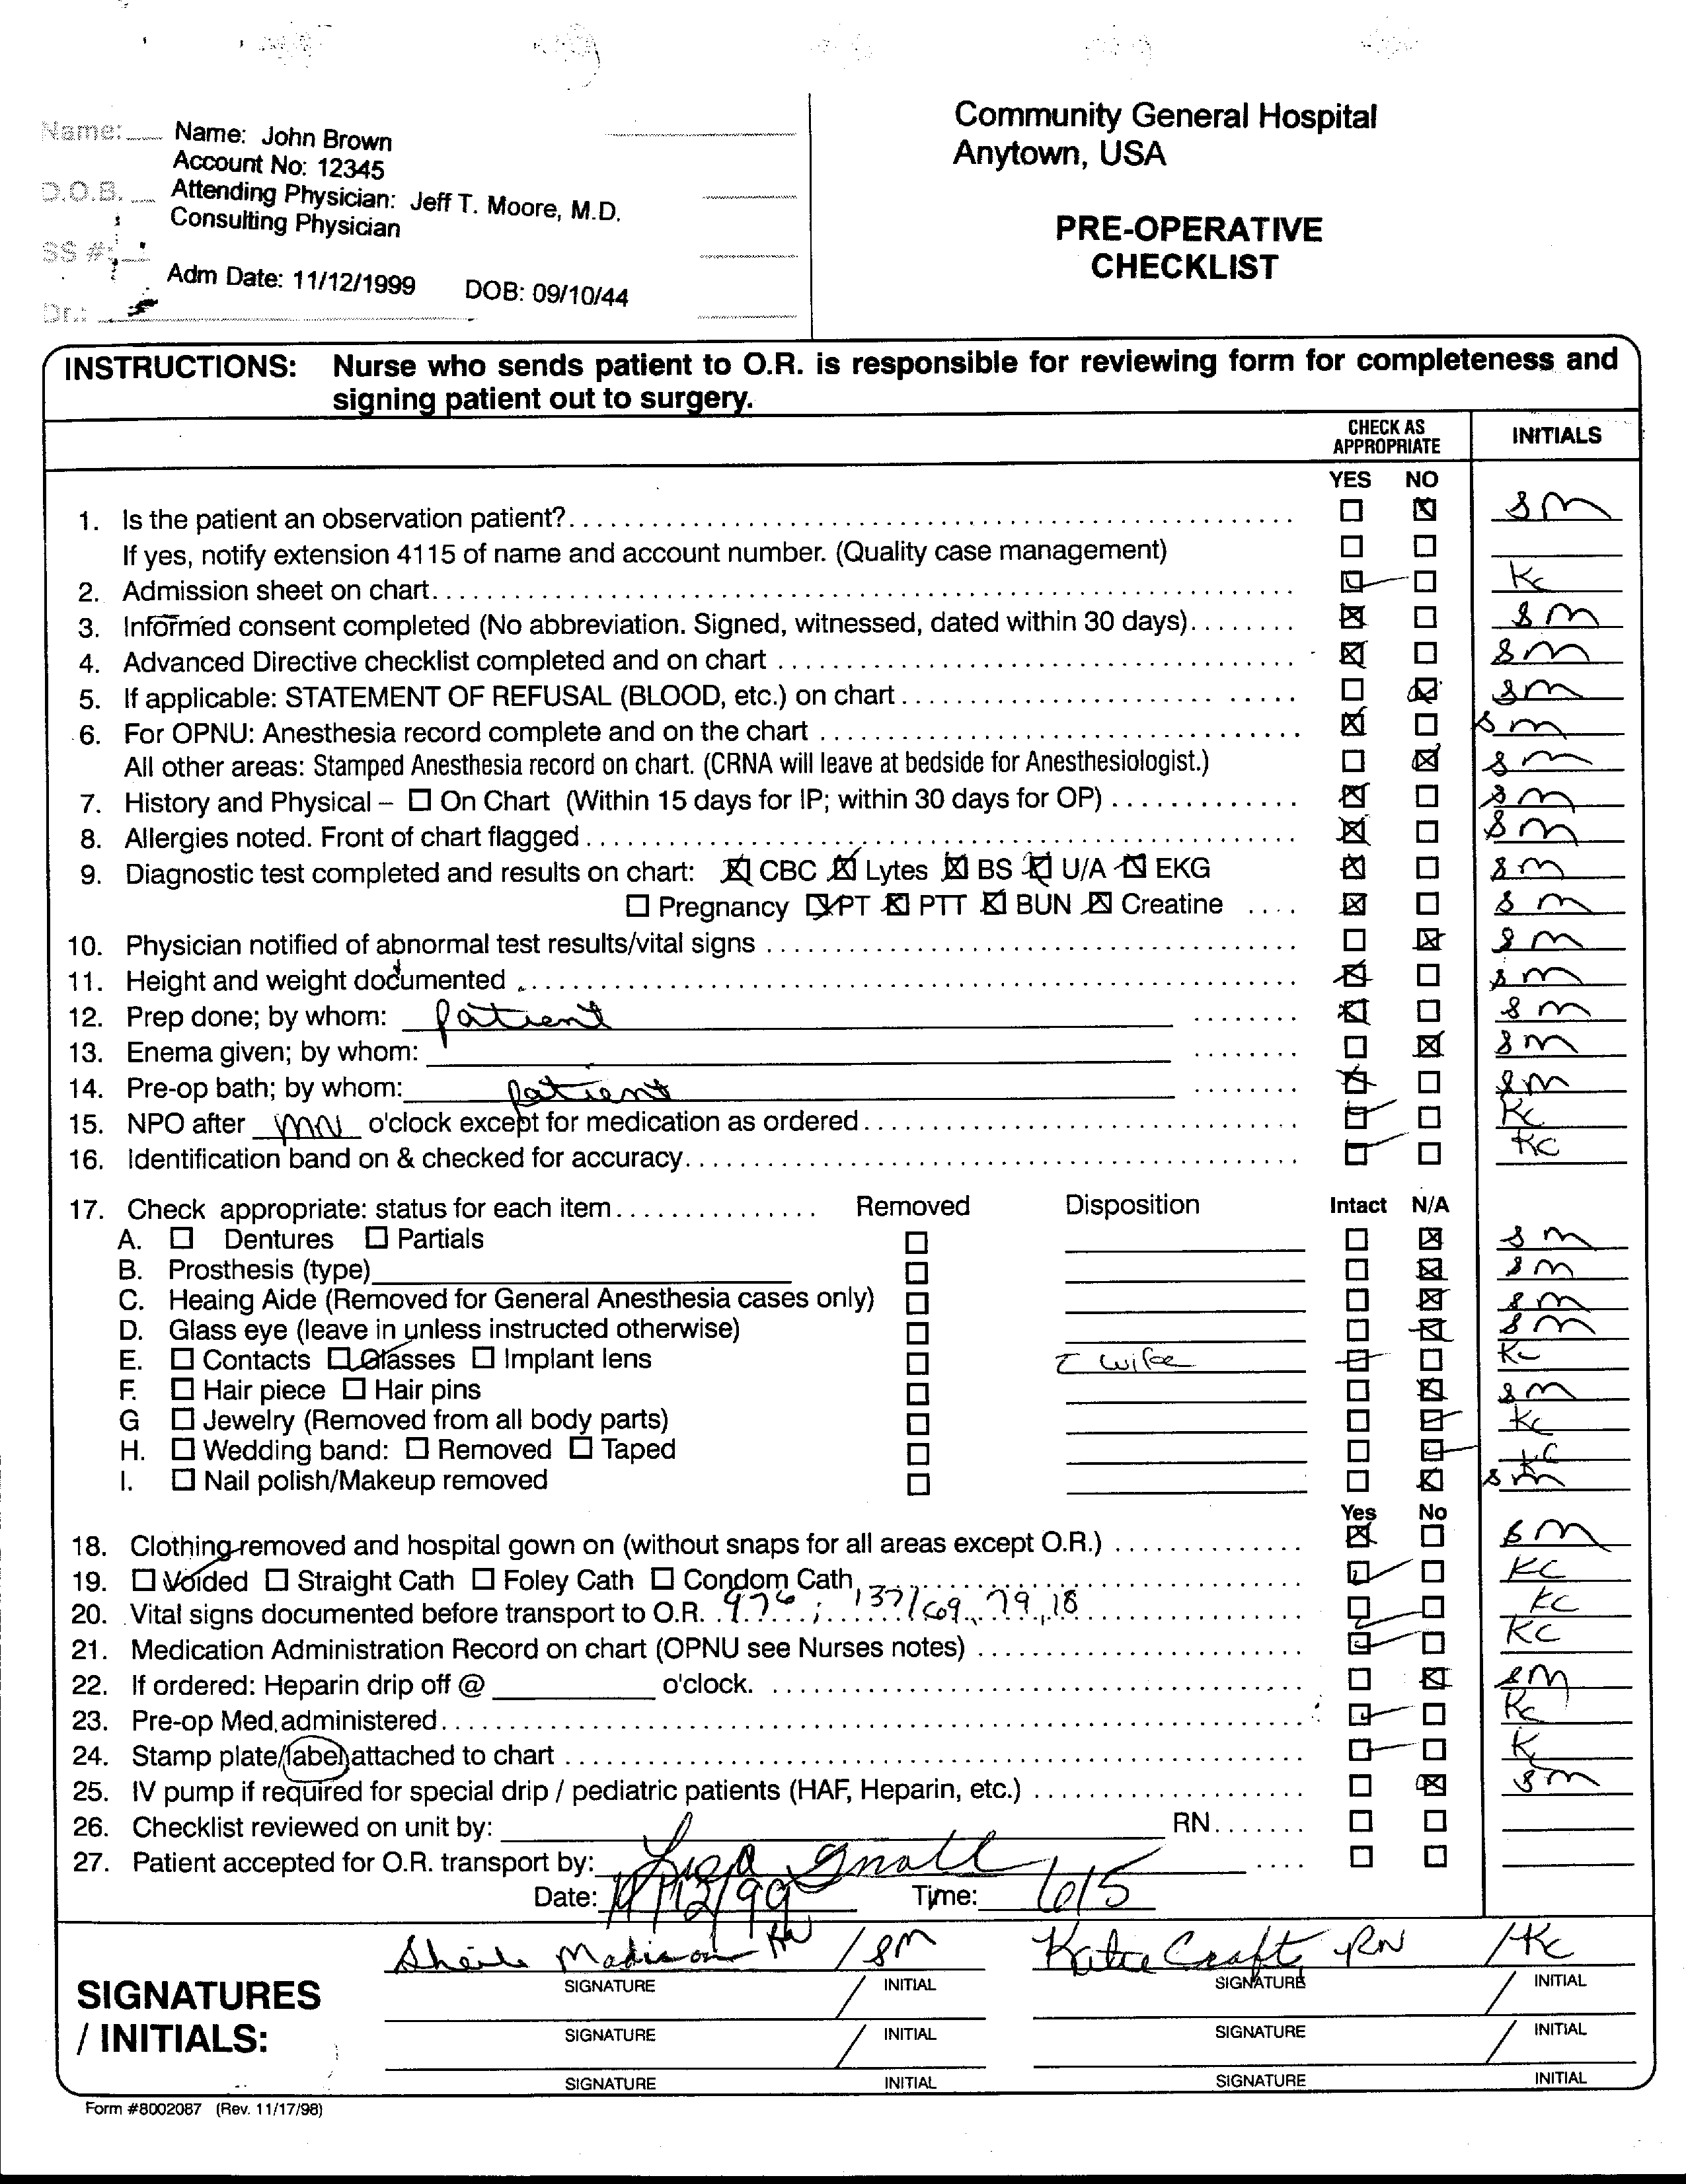 Name:
Name: John Brown
Account No: 12345
D.O.B.
Attending Physician: Jeff T. Moore, M.D.
Consulting Physician
SS #:
Adm Date: 11/12/1999 DOB: 09/10/44
Dr.:
Community General Hospital
Anytown, USA
PRE-OPERATIVE
CHECKLIST
INSTRUCTIONS: Nurse who sends patient to O.R. is responsible for reviewing form for completeness and
signing patient out to surgery.
CHECK AS
APPROPRIATE
INITIALS
YES NO
1. Is the patient an observation patient? SM
If yes, notify extension 4115 of name and account number. (Quality case management)
2. Admission sheet on chart. KC
3. Informed consent completed (No abbreviation. Signed, witnessed, dated within 30 days). SM
4. Advanced Directive checklist completed and on chart SM
5. If applicable: STATEMENT OF REFUSAL (BLOOD, etc.) on chart SM
6. For OPNU: Anesthesia record complete and on the chart SM
All other areas: Stamped Anesthesia record on chart. (CRNA will leave at bedside for Anesthesiologist.) SM
7. History and Physical – On Chart (Within 15 days for IP; within 30 days for OP) SM
8. Allergies noted. Front of chart flagged SM
9. Diagnostic test completed and results on chart: CBC Lytes BS U/A EKG SM
Pregnancy PT PTT BUN Creatine SM
10. Physician notified of abnormal test results/vital signs SM
11. Height and weight documented SM
12. Prep done; by whom: patient SM
13. Enema given; by whom: SM
14. Pre-op bath; by whom: patient SM
15. NPO after MN o'clock except for medication as ordered KC
16. Identification band on & checked for accuracy. KC
17. Check appropriate: status for each item Removed Disposition Intact N/A
A. Dentures Partials SM
B. Prosthesis (type) SM
C. Heaing Aide (Removed for General Anesthesia cases only) SM
D. Glass eye (leave in unless instructed otherwise) SM
E. Contacts Glasses Implant lens wife KC
F. Hair piece Hair pins SM
G Jewelry (Removed from all body parts) KC
H. Wedding band: Removed Taped KC
I. Nail polish/Makeup removed SM
Yes No
18. Clothing removed and hospital gown on (without snaps for all areas except O.R.) SM
19. Voided Straight Cath Foley Cath Condom Cath KC
20. Vital signs documented before transport to O.R. 137/69, 79, 18 KC
21. Medication Administration Record on chart (OPNU see Nurses notes) KC
22. If ordered: Heparin drip off @ o'clock. SM
23. Pre-op Med. administered KC
24. Stamp plate/label attached to chart K
25. IV pump if required for special drip / pediatric patients (HAF, Heparin, etc.) SM
26. Checklist reviewed on unit by: RN
27. Patient accepted for O.R. transport by: Lisa
Date: 11/12/99 Time: 615
Sheila Madison RN / SM Katie Craft RN / KC
SIGNATURE INITIAL SIGNATURE INITIAL
SIGNATURES
/ INITIALS:
SIGNATURE INITIAL SIGNATURE INITIAL
SIGNATURE INITIAL SIGNATURE INITIAL
Form #8002087 (Rev. 11/17/98)